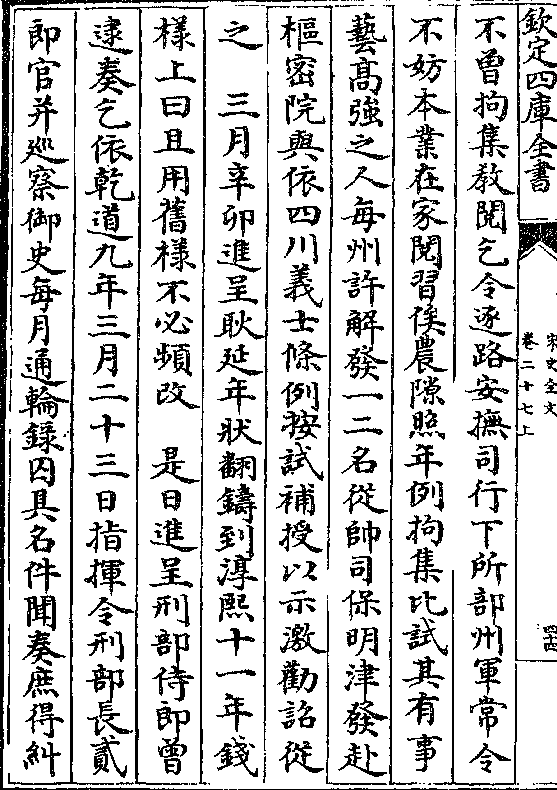 欽定四庫全書
宋史全文
卷二十七上
四十四
不曽拘集教閲乞令逐路安撫司行下所部州軍常令
不妨本業在家閲習俟農隙照年例拘集比試其有事
藝髙強之人每州許解發一二名從帥司保明津發赴
樞密院與依四川義士條例按試補授以示激勸詔從
之　三月辛卯進呈耿延年狀翻鑄到淳熙十一年錢
樣上曰且用舊樣不必頻改　是日進呈刑部侍郎曾
逮奏乞依乾道九年三月二十三日指揮令刑部長貳
郎官并廵察御史每月通輪錄囚具名件聞奏庶得糾